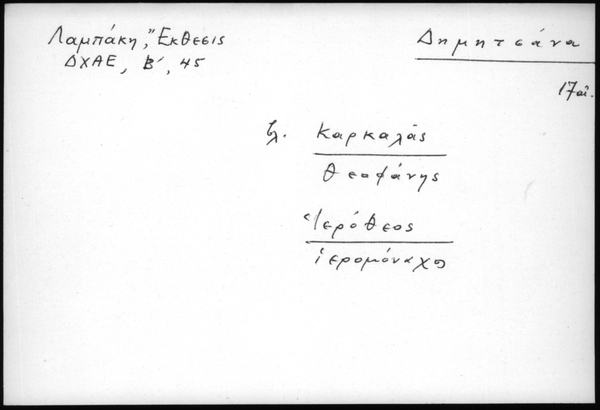 Λαμπάκη, Ἔκθεσις
ΔΧΑΕ, Β΄, 45
Δημητσάνα
17 αἰ.
βλ. Καρκαλᾶς
Θεοφάνης
Ἱερόθεος
ἱερομόναχος